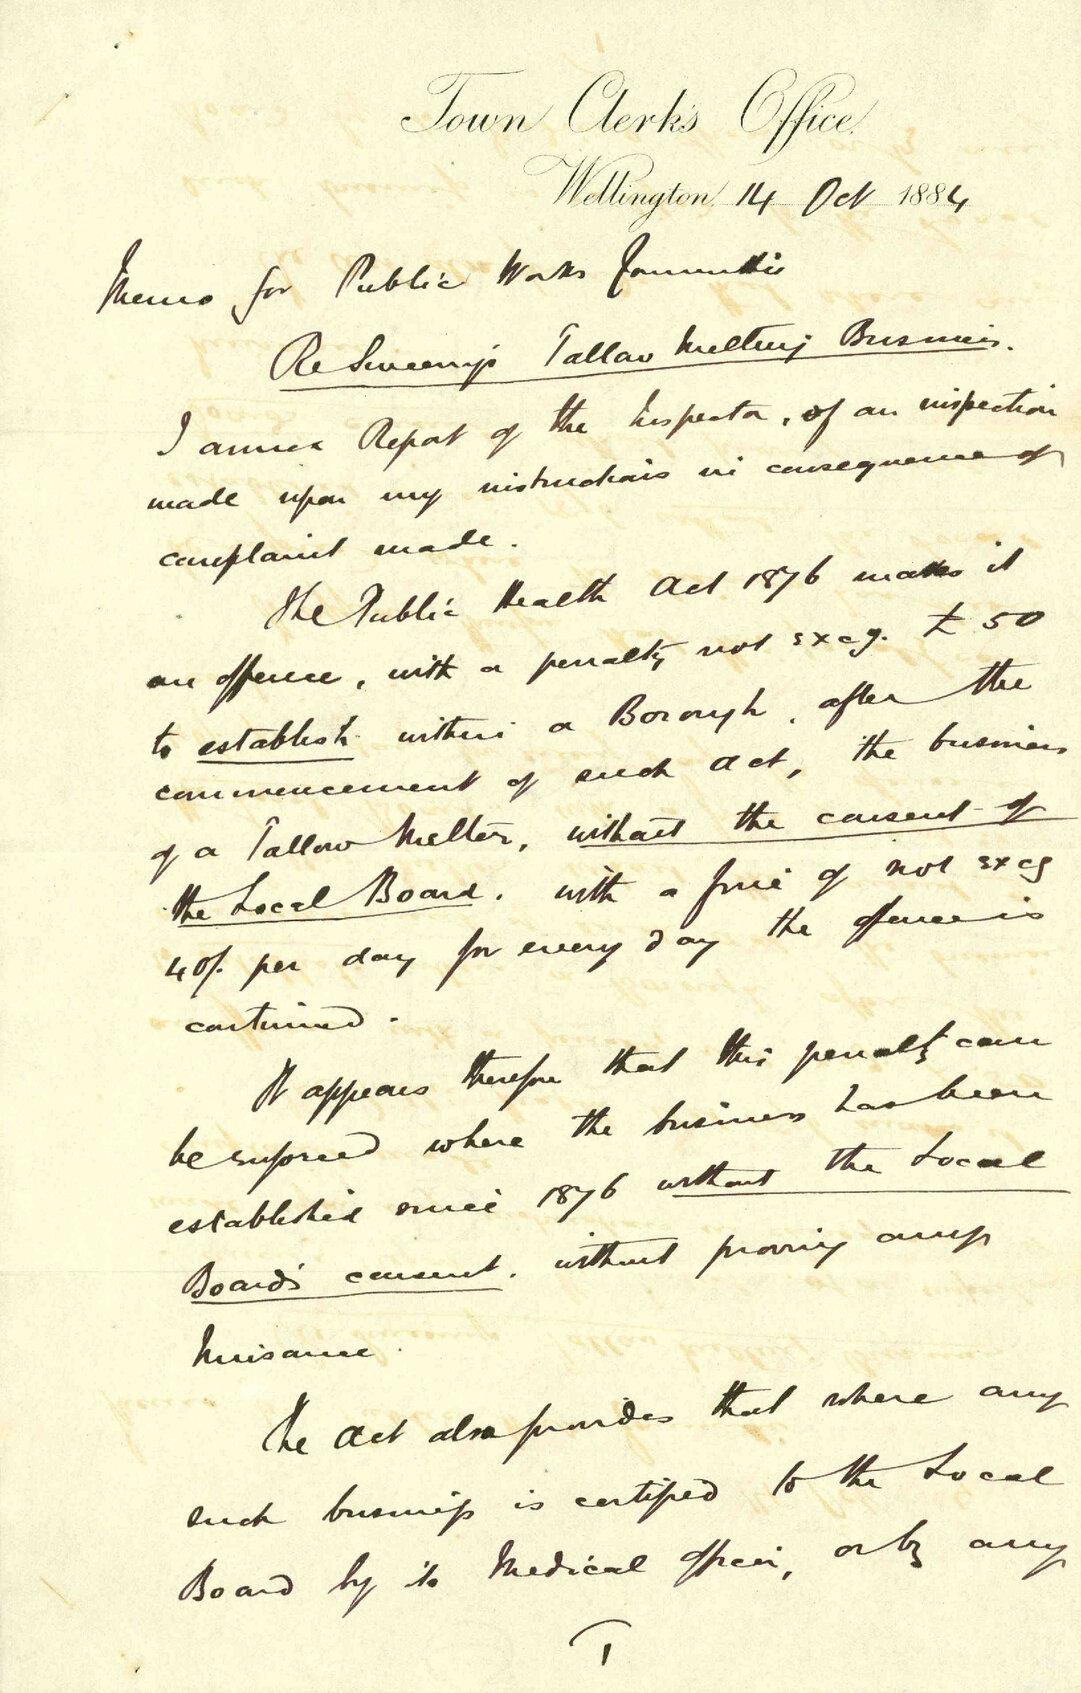 Town Clerk's Office,
Wellington, 14 Oct 1884
Memo for Public Works Committee
Re Sweeney's Tallow Melting Business.
I annex Report of the Inspector, of an inspection
made upon my instructions in consequence of
complaint made.
The Public Health Act 1876 makes it
an offence, with a penalty not excg. £50
to establish within a Borough, after the
commencement of such Act, the business
of a Tallow Melter, without the consent of
the Local Board, with a fine of not excg
40/- per day for every day the offence is
continued.
It appears therefore that this penalty can
be enforced where the business has been
established since 1876 without the Local
Board's consent, without proving any
Nuisance.
The Act also provides that where any
such business is certified to the Local
Board by its Medical officer, or by any
1